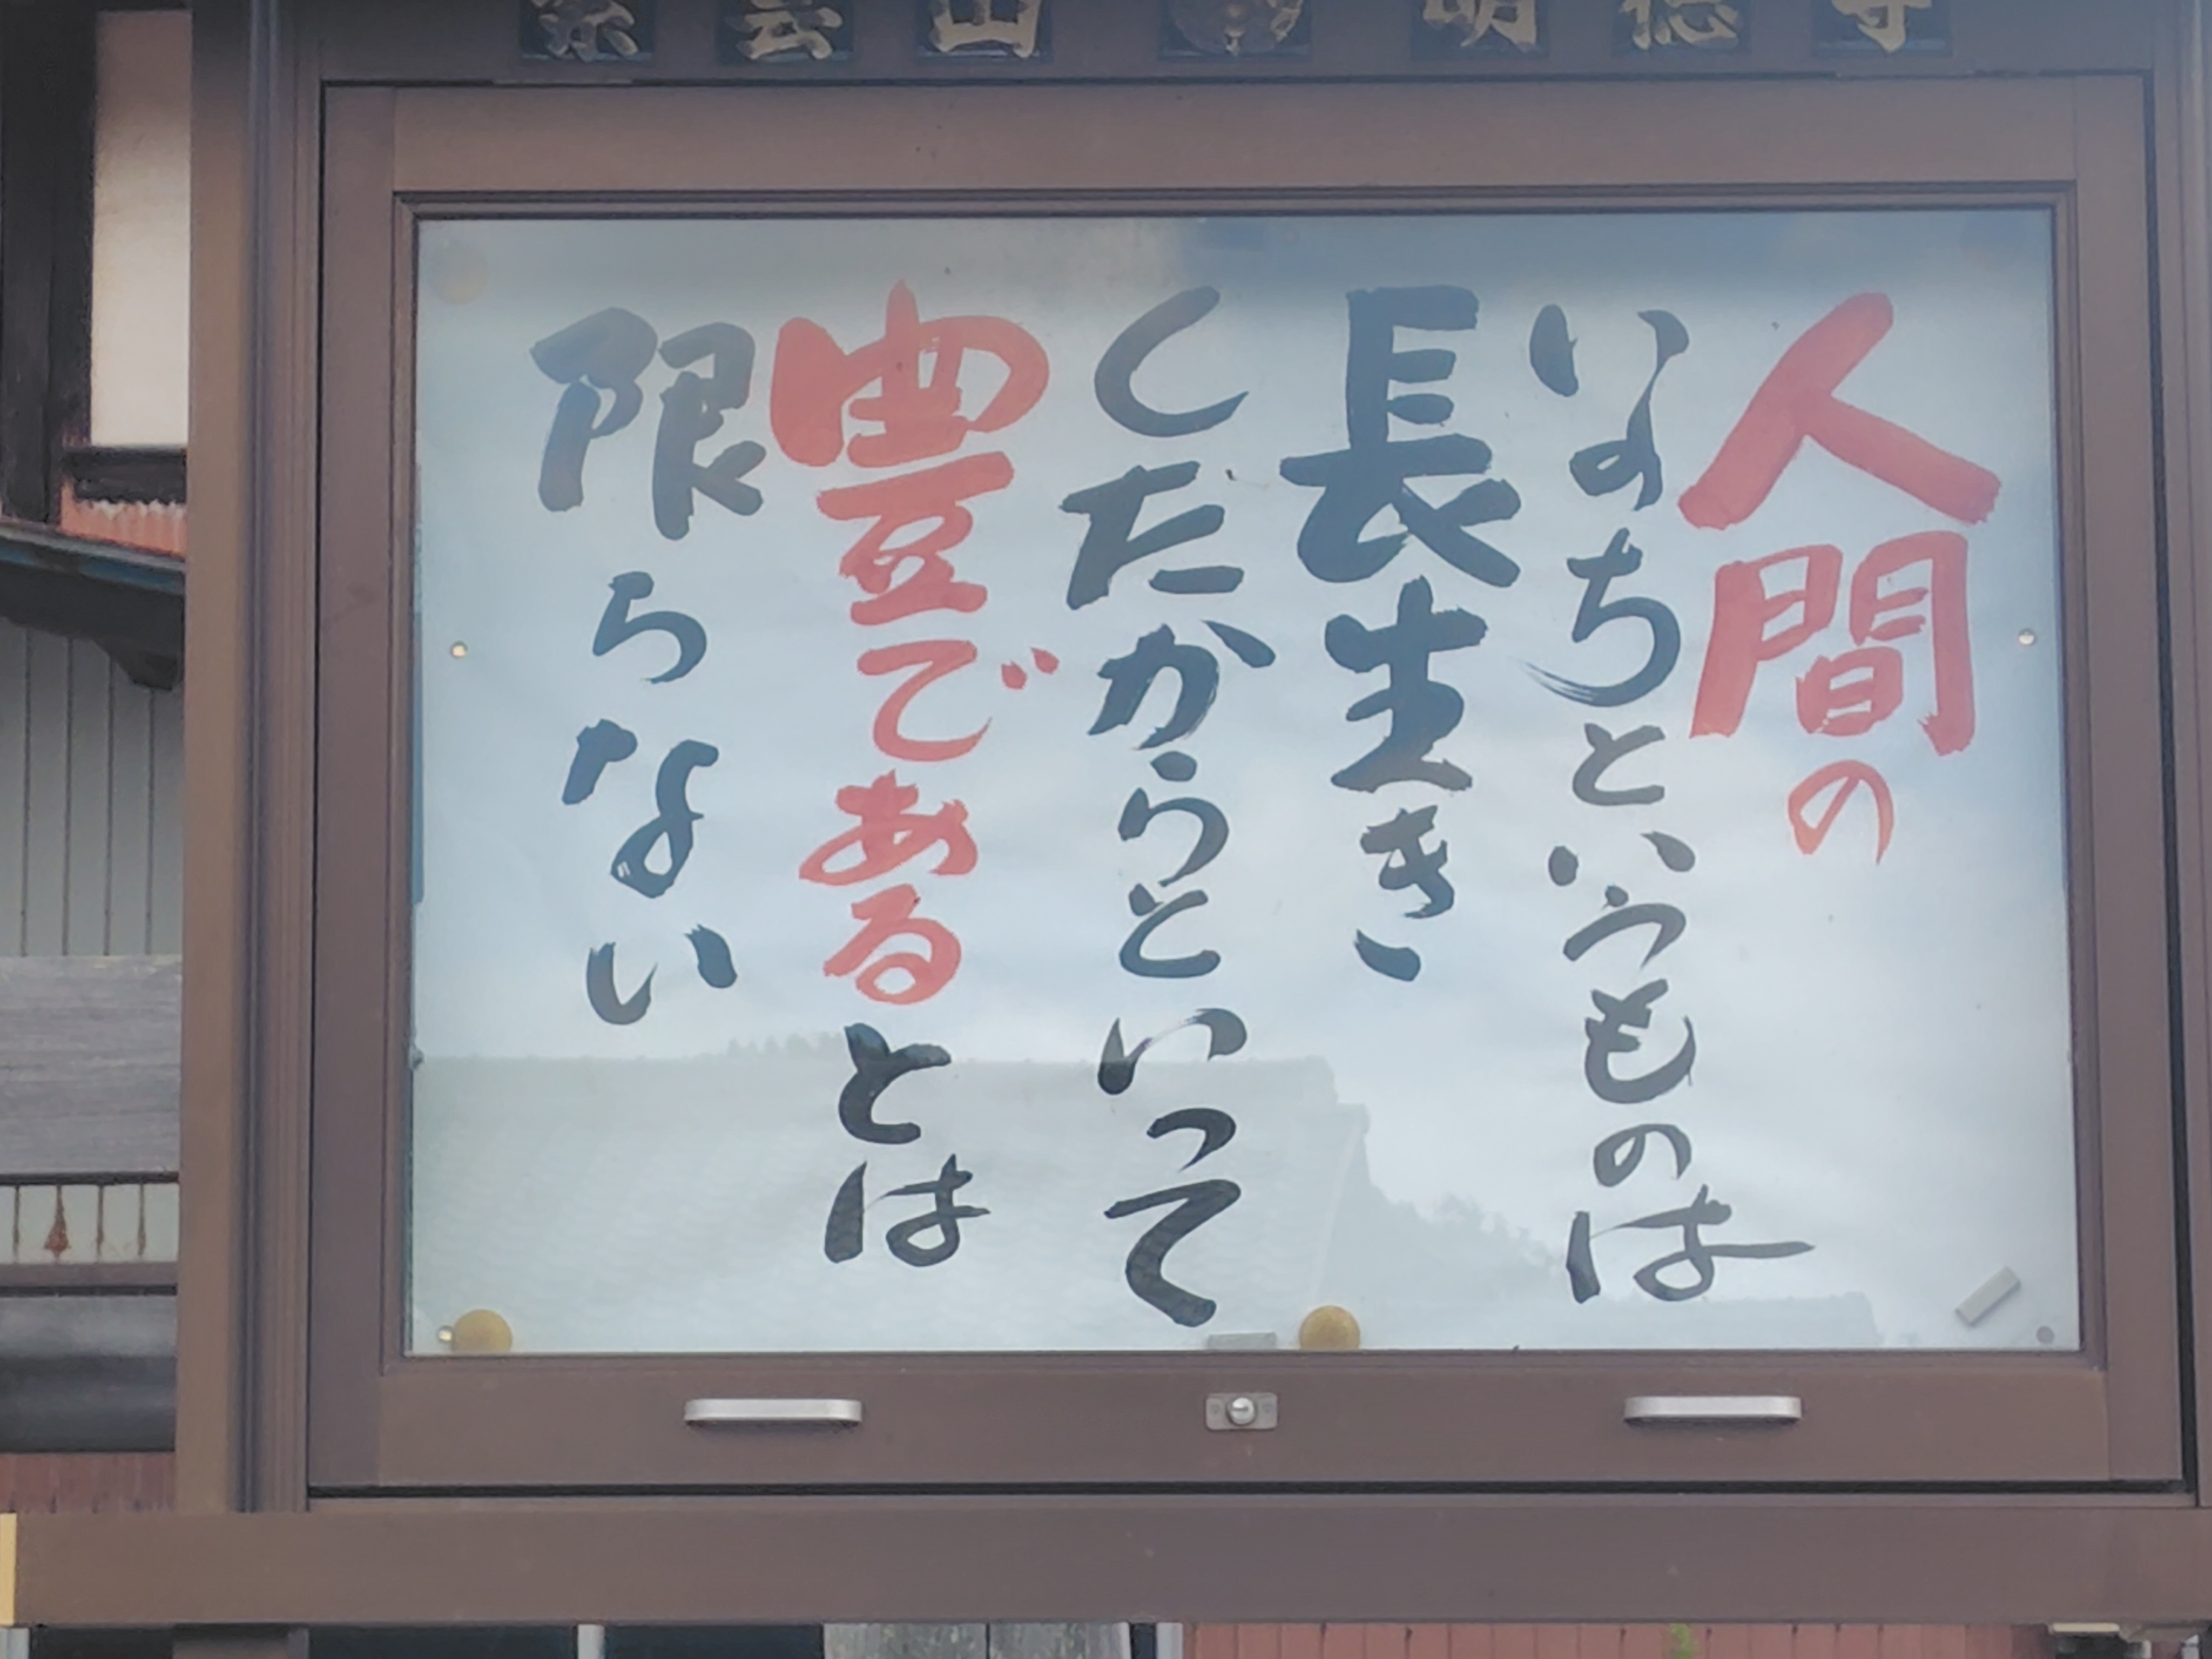 紫雲山 明徳寺
人間の
いのちというものは
長生き
したからといって
豊であるとは
限らない